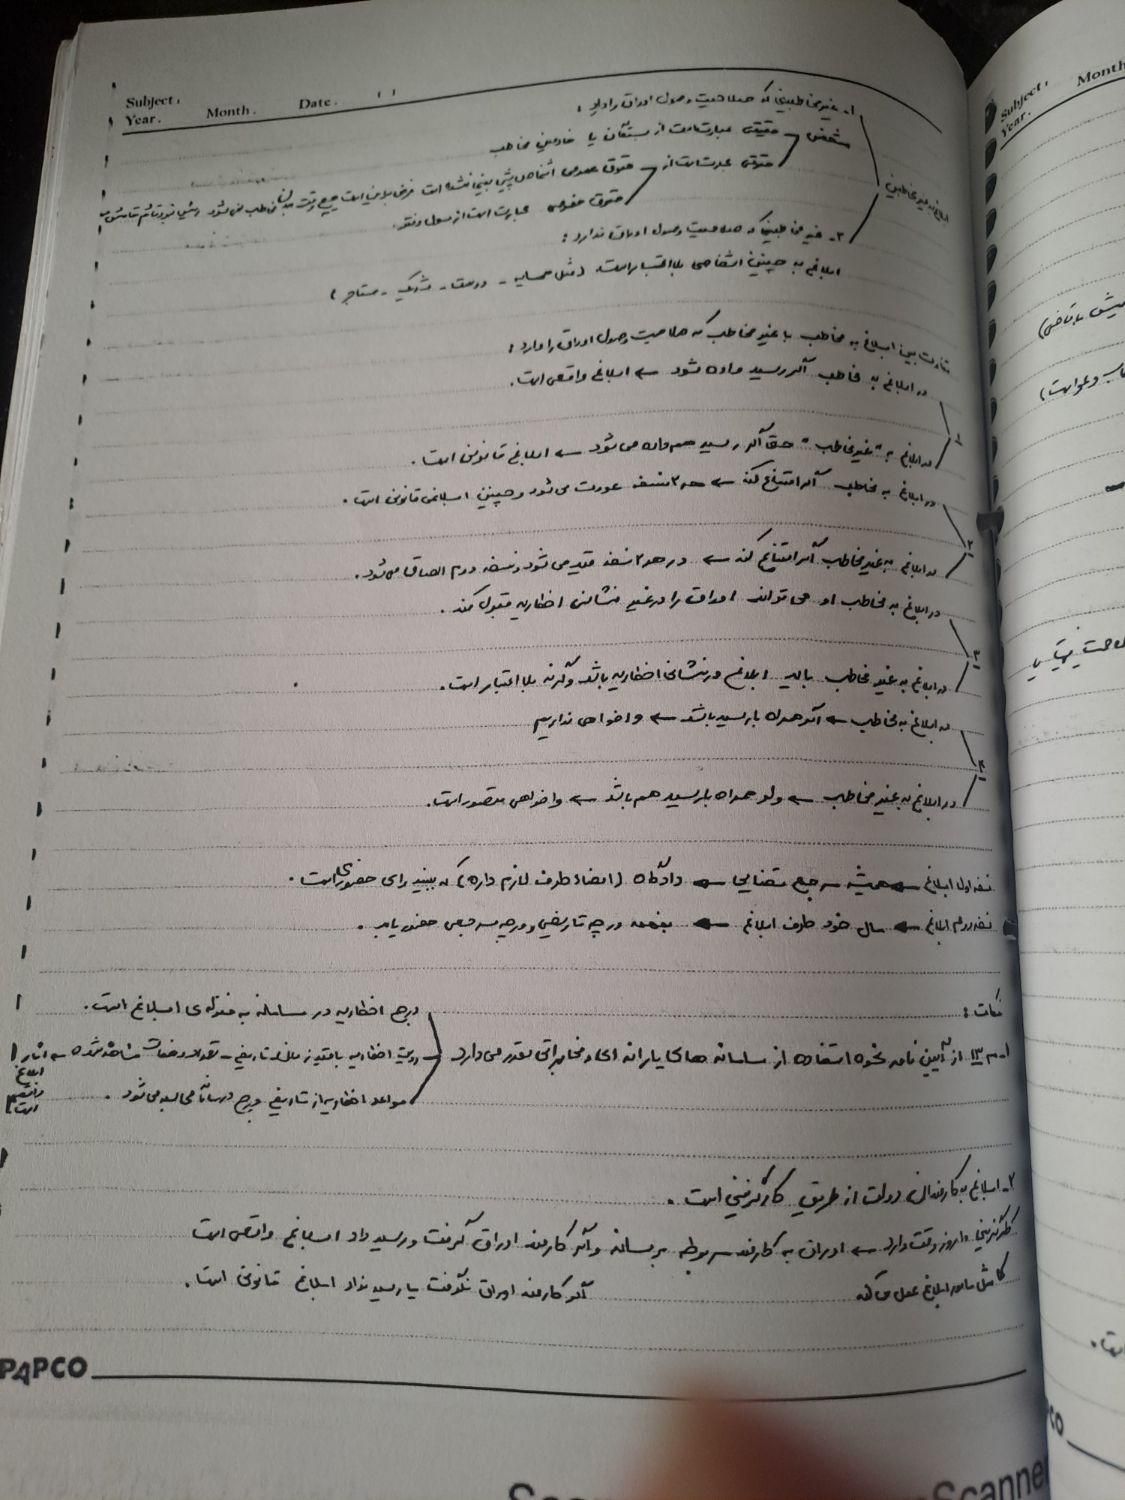 Subject:
Year. Month. Date. / /
ابلاغ به غیر مخاطبین
۱- غیر مخاطبینی که صلاحیت وصول اوراق را دارد:
شخص
حقیقی عبارت است از بستگان یا خادمین مخاطب
حقوقی عبارت است از
حقوق عمومی اشخاص پیش بینی نشده است
حقوق خصوصی عبارت است از مسئول دفتر.
۲- غیر مخاطبینی که صلاحیت وصول اوراق ندارد:
ابلاغ به چنین اشخاصی بلا اعتبار است. (مثل همسایه - دوست - شریک - مستاجر)
تفاوت بین ابلاغ به مخاطب با غیر مخاطب که صلاحیت وصول اوراق را دارد:
۱
در ابلاغ به مخاطب اگر رسید داده شود ← ابلاغ واقعی است.
در ابلاغ به "غیر مخاطب" حتی اگر رسید هم داده می شود ← ابلاغ قانونی است.
۲
در ابلاغ به مخاطب اگر امتناع کند ← هر ۲ نسخه عودت می شود و چنین ابلاغی قانونی است.
در ابلاغ به غیر مخاطب اگر امتناع کند ← در هر ۲ نسخه قید می شود و نسخه دوم الصاق می شود.
۳
در ابلاغ به مخاطب او می تواند اوراق را در غیر نشانی اخطاریه قبول کند.
در ابلاغ به غیر مخاطب باید ابلاغ در نشانی اخطاریه باشد وگرنه بلا اعتبار است.
۴
در ابلاغ به مخاطب ← اگر همراه با رسید باشد ← واخواهی نداریم
در ابلاغ به غیر مخاطب ← ولو همراه با رسید هم باشد ← واخواهی متصور است.
نسخه اول ابلاغ ← همیشه مرجع قضایی ← دادگاه (امضاء طرف لازم داره) که ببیند رای حضوری است.
نسخه دوم ابلاغ ← مال خود طرف ابلاغ ← بفهمه در چه تاریخی و در چه مرجعی حضور یابد.
نکات:
۱- م ۱۳ از آیین نامه نحوه استفاده از سامانه های رایانه ای و مخابراتی مقرر می دارد
درج اخطاریه در سامانه به منزله ی ابلاغ است.
رویت اخطاریه با قید زمان و تاریخ - ← آثار ابلاغ واقعی است
مواعد اخطاریه از تاریخ درج در سامانه محاسبه می شود.
۲- ابلاغ به کارمندان دولت از طریق کارگزینی است.
کارگزینی ۱۰ روز وقت دارد ← اوراق به کارمند مربوطه برسانه و اگر کارمند اوراق گرفت و رسید داد ابلاغ واقعی است
کا مثل مامور ابلاغ عمل می کند
اگر کارمند اوراق نگرفت یا رسید نداد ابلاغ قانونی است.
PAPCO
Subject:
Year. Month
Scanne